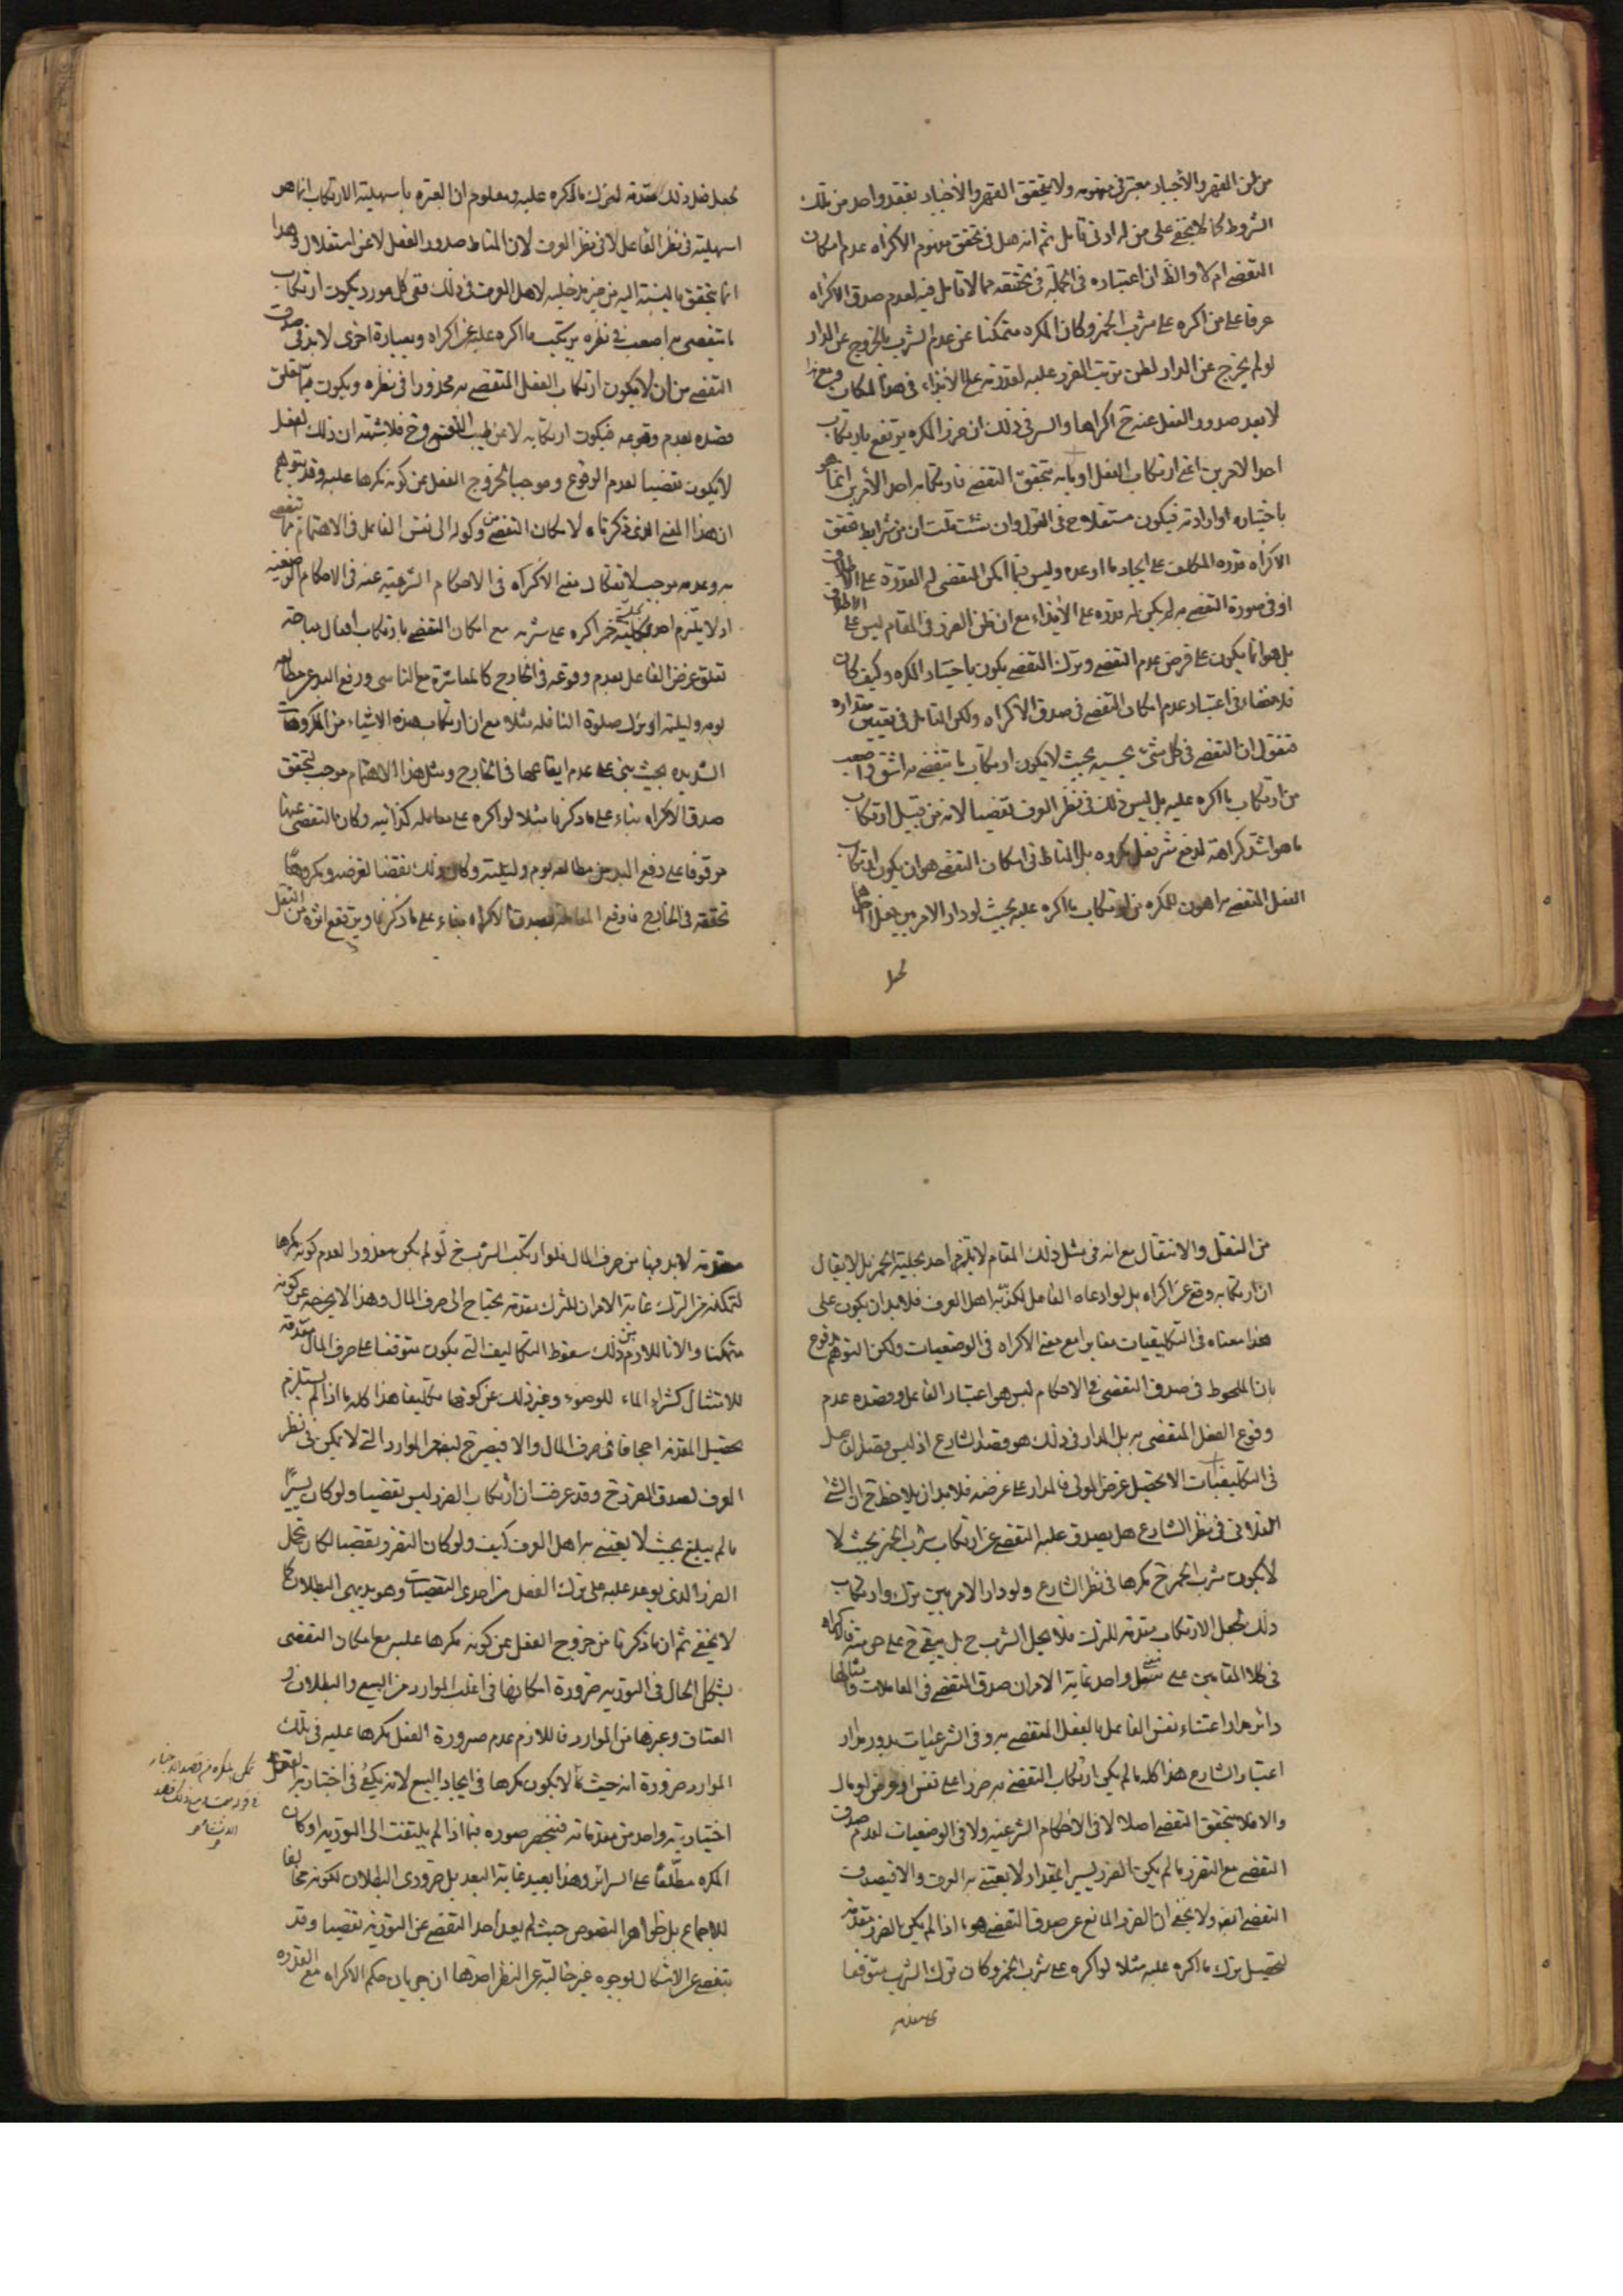 من ظن القهر والأجبار معتبر في مفهومه ولا يتحقق القهر والأجبار بفقد واحد من تلك
الشروط كما لا يخفى على من له ادنى تامل ثم انه هل في تحقق مفهوم الاكراه عدم امكان
التفصي ام لا والظ ان اعتباره في الجملة في تحققه مما لا تامل فيه لعدم صدق الاكراه
عرفا على من اكره على شرب الخمر وكان المكره متمكنا عن عدم الشرب بالخروج عن الدار
لو لم يخرج عن الدار لظن ترتب الضرر عليه لقدرته على الايذاء في هذا المكان ومع هذا
لا يعد صدور الفعل عنه ح اكراها والسر في ذلك ان ضرر المكره يرتفع بارتكاب
احد الامرين اعني ارتكاب الفعل او ما به يتحقق التفصي فارتكابه احد الأمرين انما هو
باختياره او ارادته فيكون مستقلا ح في الفعل وان شئت قلت ان من شرايط تحقق
الاكراه قدرة المكلف على ايجاد ما اوعده وليس فيما امكن التفصي له القدرة على الاطلاق
او في صورة التفصي به لم يكن له قدرة على الأيذاء مع ان ظن الضرر في المقام ليس على الاطلاق
بل هو انما يكون على فرض عدم التفصي وترك التفصي يكون باختيار المكره وكيف كان
فلا خفاء في اعتبار عدم امكان التفصي في صدق الاكراه ولكن التامل في تعيين مقداره
فنقول ان التفصي في كل شئ بحسبه بحيث لا يكون ارتكاب ما يتفصي به اشق واصعب
من ارتكاب ما اكره عليه بل ليس ذلك في نظر العرف تفصيا لانه من قبيل ارتكاب
ما هو اشد كراهة لدفع شر فعل مكروه بل المناط في امكان التفصي هو ان يكون ارتكاب
الفعل المتفصي به اهون للمكره من ارتكاب ما اكره عليه بحيث لو دار الامر بين فعل احدهما
لجعل
لجعل فعل ذلك مقدمة لترك ما اكره عليه ومعلوم ان العبرة باسهلية الارتكاب انما هو
اسهليته في نظر الفاعل لا في نظر العرف لان المناط صدور الفعل لا عن استقلال وهذا
انما يتحقق بالنسبة اليه من غير مدخلية لاهل العرف في ذلك ففي كل مورد يكون ارتكاب
ما يتفصي به اصعب في نظره يرتكب ما اكره عليه عن اكراه وبعبارة اخرى لا بد في صدق
التفصي من ان لا يكون ارتكاب الفعل المتفصي به محذورا في نظره ويكون مما تعلق
قصده بعدم وقوعه فيكون ارتكابه لا عن طيب النفس وح فلا شبهة ان ذلك الفعل
لا يكون تفصيا لعدم الوقوع وموجبا لخروج الفعل عن كونه مكرها عليه وقد يتوهم
ان هذا المعنى الذي ذكرناه لامكان التفصي من وكوله الى نفس الفاعل في الاهتمام بما يتفصي
به وعدمه موجب لانفكاك معنى الاكراه في الاحكام الشرعية عنه في الاحكام الوضعية
اذ لا يلتزم احد بحلية خمر اكره على شربه مع امكان التفصي بارتكاب افعال مباحة
تعلق غرض الفاعل بعدم وقوعه في الخارج كالمعاشرة مع الناس ورفع اليد عن مطالعة
يومه وليلته او ترك صلوة النافلة مثلا مع ان ارتكاب هذه الاشياء من المكروهات
الشديدة بحيث بنى على عدم ايقاعها في الخارج ومثل هذا الاهتمام موجب لتحقق
صدق الاكراه بناء على ما ذكرنا مثلا لو اكره على معاملة كذائيه وكان التفصي عنها
موقوفا على رفع اليد عن مطالعة يوم وليلته وكان ذلك نقضا لغرضه ومكروها
تحققه في الخارج فاوقع المعاملة لصدق الاكراه بناء على ما ذكرنا ويرتفع اثره من النقل
من النقل والانتقال مع انه في مثل ذلك المقام لا يلتزم احد بحلية الخمر بل لا يقال
ان ارتكابه وقع عن اكراه بل لو ادعاه الفاعل لكذبه اهل العرف فلا بد ان يكون على
هذا معناه في التكليفيات مغايرا مع معنى الاكراه في الوضعيات ولكن التوهم مدفوع
بان الملحوظ في صدق التفصي في الاحكام ليس هو اعتبار الفاعل وقصده عدم
وقوع الفعل المتفصي به بل المدار في ذلك هو قصد الشارع اذ ليس وقصد الفاعل
في التكليفيات الا تحصيل غرض المولى فالمدار على غرضه فلا بد ان يلاحظ ح ان الشئ
الفلاني في نظر الشارع هل يصدق عليه التفصي عن ارتكاب شرب الخمر بحيث لا
لا يكون شرب الخمر ح مكرها في نظر الشارع ولو دار الامر بين تركه وارتكاب
ذلك لجعل الارتكاب مقدمة للترك فلا يحل الشرب ح بل يبقى ح على حرمته فالاكراه
في كلا المقامين على معنى واحد غاية الامر ان صدق التفصي في المعاملات وامثالها
دائر مدار اعتناء نفس الفاعل بالفعل المتفصي به وفي الشرعيات يدور مدار
اعتبار الشارع هذا كله ما لم يكن ارتكاب التفصي به ضررا على نفس او عرض او مال
والا فلا يتحقق التفصي اصلا لا في الأحكام الشرعية ولا في الوضعيات لعدم صدق
التفصي مع التضرر ما لم يكن الضرر يسيرا بمقدار لا يعتني به العرف والا فيصدق
التفصي ايضا ولا يخفى ان الضرر المانع عن صدق التفصي هو ما اذا لم يكن الضرر مقدمة
لتحصيل ترك ما اكره عليه مثلا لو اكره على شرب الخمر وكان ترك الشرب متوقفا
على مقدمة
مقدمة لا بد فيها من صرف المال فلو ارتكب الشرب ح لو لم يكن معذورا لعدم كونه مكرها
لتمكنه من الترك غاية الامر ان للترك مقدمة يحتاج الى صرف المال وهذا لا يخرجه عن كونه
متمكنا والا فاللازم من ذلك سقوط التكاليف التي يكون متوقفا على صرف المال مقدمة
للامتثال كشراء الماء للوضوء وغير ذلك عن كونها تكليفا هذا كله ما اذا لم يستلزم
تحصيل المقدمة اجحافا في صرف المال والا فيصير ح لبعض الموارد التي لا يمكن في نظر
العرف لصدق الضرر ح وقد عرفت ان ارتكاب الضرر ليس تفصيا ولو كان يسيرا
ما لم يبلغ بحيث لا يعتني به اهل العرف كيف ولو كان التضرر تفصيا لكان تحمل
الضرر الذي يوعد عليه على ترك الفعل من احدى التفصيات وهو بديهي البطلان كما
لا يخفى ثم ان ما ذكرنا من خروج الفعل عن كونه مكرها عليه مع امكان التفصي
يشكل الحال في التورية ضرورة امكانها في اغلب الموارد من البيع والطلاق و
العتاق وغيرها من الموارد فاللازم عدم صيرورة الفعل مكرها عليه في تلك
الموارد ضرورة انه حيث لا يكون مكرها في ايجاد البيع لانه يكفي في اختيارية الفعل
اختيارية واحد من مقدماته فينحصر صوره فيما اذا لم يلتفت الى التورية او كان
المكره مطلعا على السرائر وهذا بعيد غاية البعد بل ضروري البطلان لكونه مخالفا
للاجماع بل ظواهر النصوص حيث لم يعد احد التفصي عن التورية تفصيا وقد
يتفصي عن الاشكال بوجوه غير خالية عن النظر احدها ان جريان حكم الاكراه مع القدرة